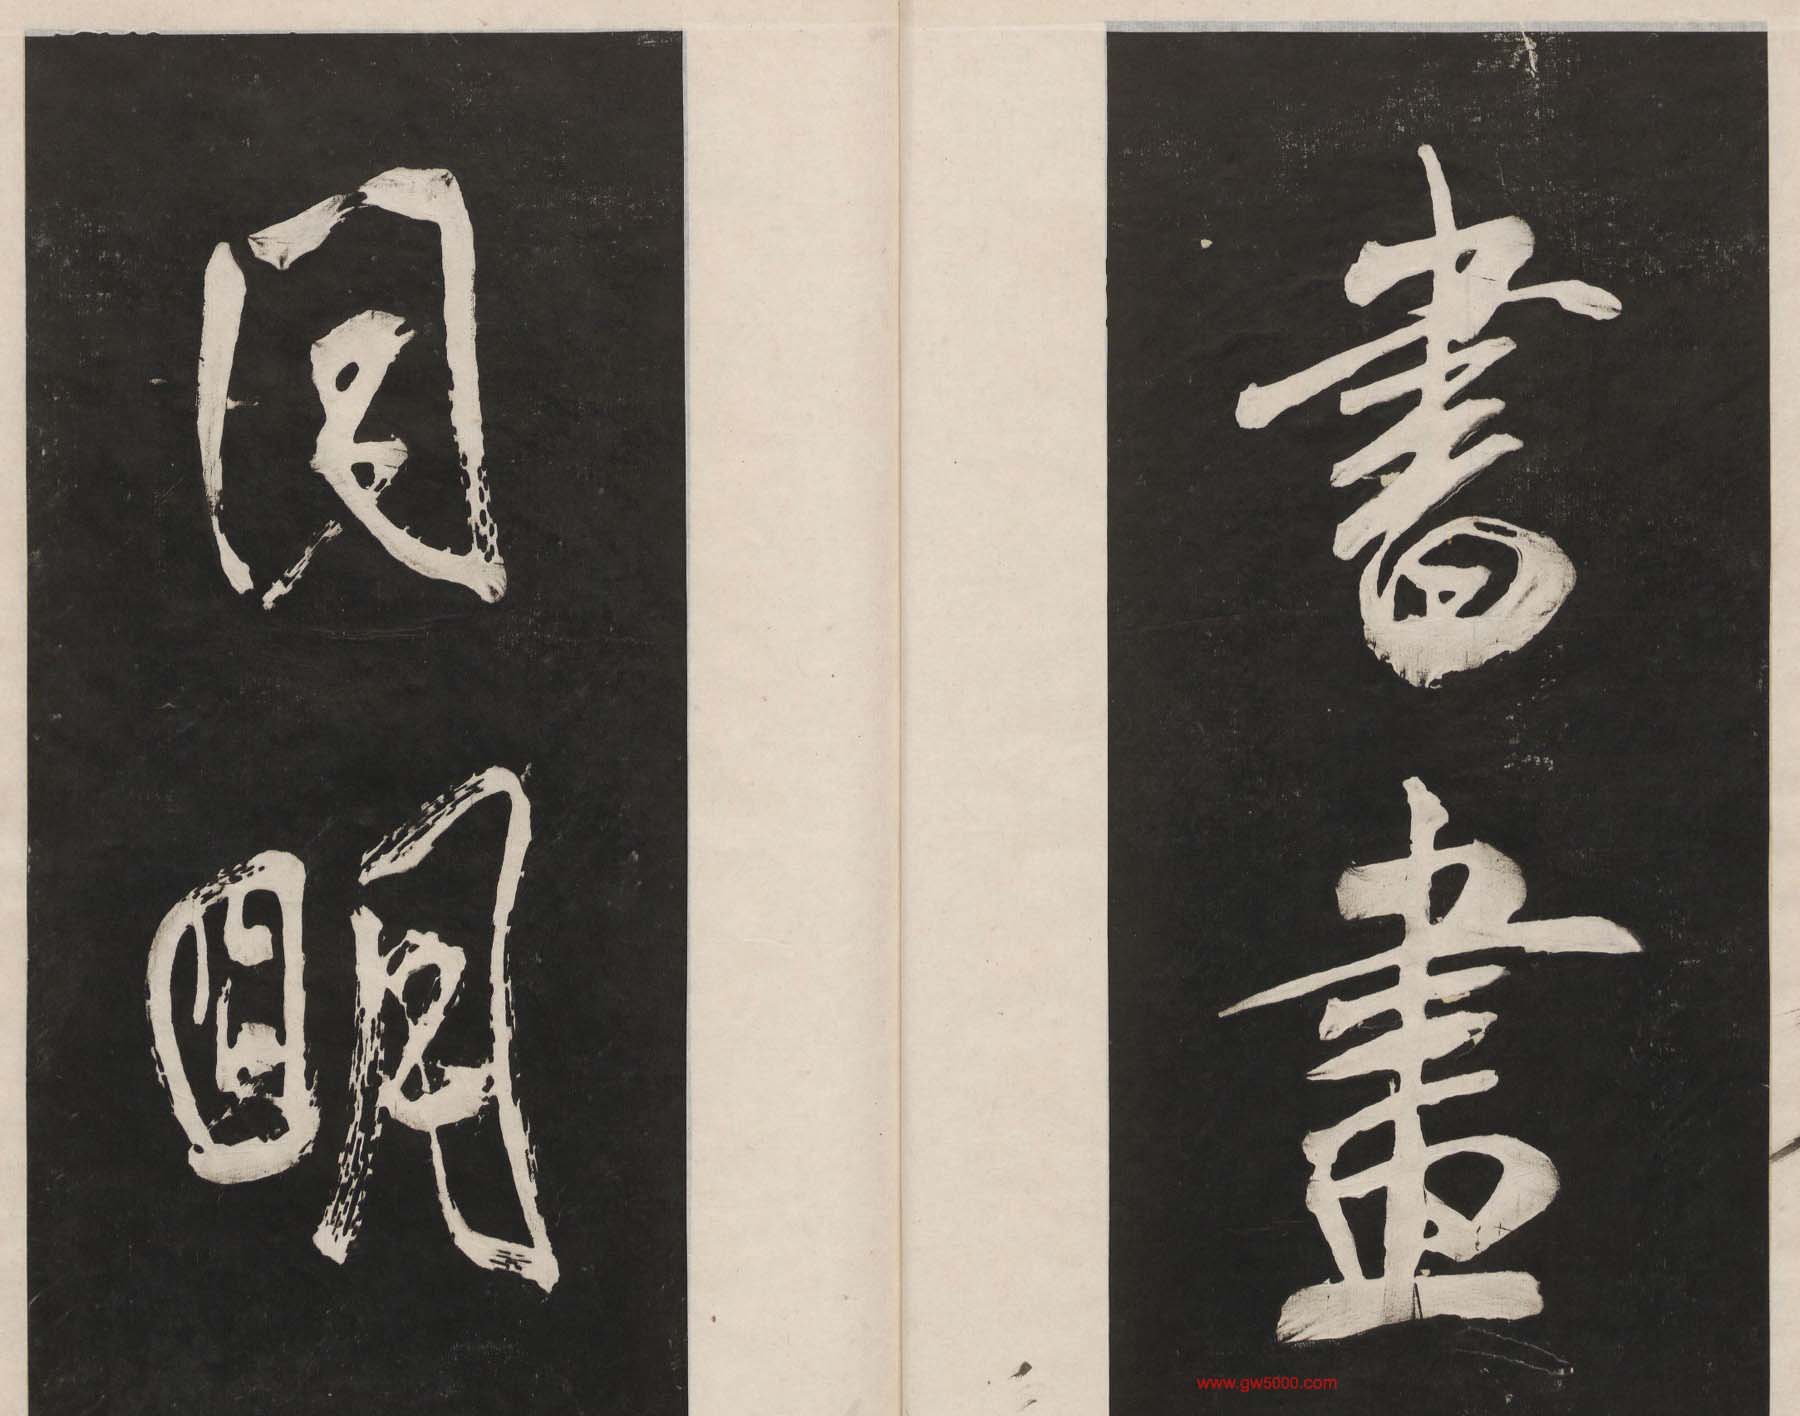 書畫
月明
www.gw5000.com